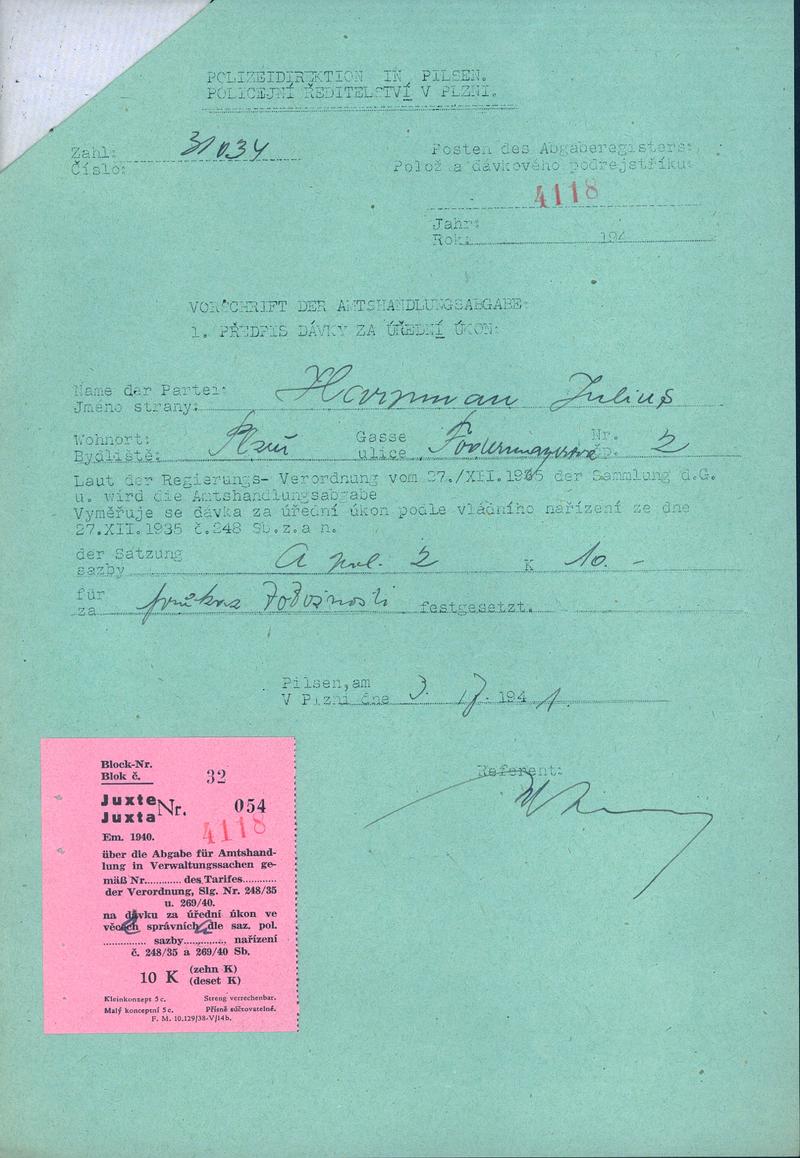 POLIZEIDIREKTION IN PILSEN.
POLICEJNÍ ŘEDITELSTVÍ V PLZNI.
Zahl: 31034
Číslo:
Posten des Abgaberegisters:
Polož a dávkového podrejstříku:
4118
Jahr:
Rok: 194
VORSCHRIFT DER AMTSHANDLUNGSABGABE:
1. PŘEDPIS DÁVKY ZA ÚŘEDNÍ ÚKON:
Name dar Partei:
Jméno strany: Julius
Wohnort: Plzeň Gasse Nr. 2
Bydliště: ulice čp.
Laut der Regierungs- Verordnung vom 27./XII.1935 der Sammlung d.G.
u. wird die Amtshandlungsabgabe
Vyměřuje se dávka za úřední úkon podle vládního nařízení ze dne
27.XII.1935 č.248 Sb.z.a n.
der Satzung A pol. 2 K 10.-
sazby
für
za průkaz totožnosti festgesetzt.
Pilsen,am
V Plzni dne 3. 194 1.
Referent:
Block-Nr.
Blok č. 32
Juxte Nr. 054
Juxta
4118
Em. 1940.
über die Abgabe für Amtshand-
lung in Verwaltungssachen ge-
mäß Nr........... des Tarifes..........
der Verordnung, Slg. Nr. 248/35
u. 269/40.
na dávku za úřední úkon ve
věcech správních dle saz. pol.
2 a
............. sazby............ nařízení
č. 248/35 a 269/40 Sb.
10 K (zehn K)
(deset K)
Kleinkonzept 5 c. Streng verrechenbar.
Malý konceptní 5 c. Přísně súčtovatelné.
F. M. 10.129/38-V/14b.